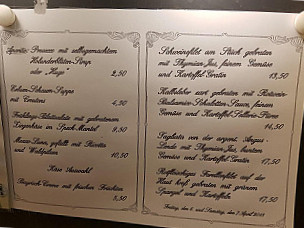 Aperitiv Prosecco mit selbstgemachtem
Holunderblüten-Sirup
oder "Hugo" 2,50
Schaum-Suppe
mit Croutons 4,50
mit gebratenem
Ziegenkäse im Speck-Mantel 9,50
gefüllt mit Ricotta
und 10,50
Käse Auswahl
Bayrisch Creme mit frischen Früchten
5,50
Schweinefilet am Stück gebraten
mit Thymian-Jus, feinem Gemüse
und Kartoffel Gratin 13,50
Kalbsleber zart gebraten mit Rotwein-
Balsamico-Schalotten-Sauce, feinem
Gemüse und Kartoffel-Sellerie-Püree
14,50
Tagliata von der argent. Angus-
Lende mit Thymian-Jus, buntem
Gemüse und Kartoffel Gratin 17,50
Forellenfilet auf der
Haut kroß gebraten mit grünem
Spargel und Kartoffeln 17,50
Freitag, den 6. und Samstag, den 7. April 2018